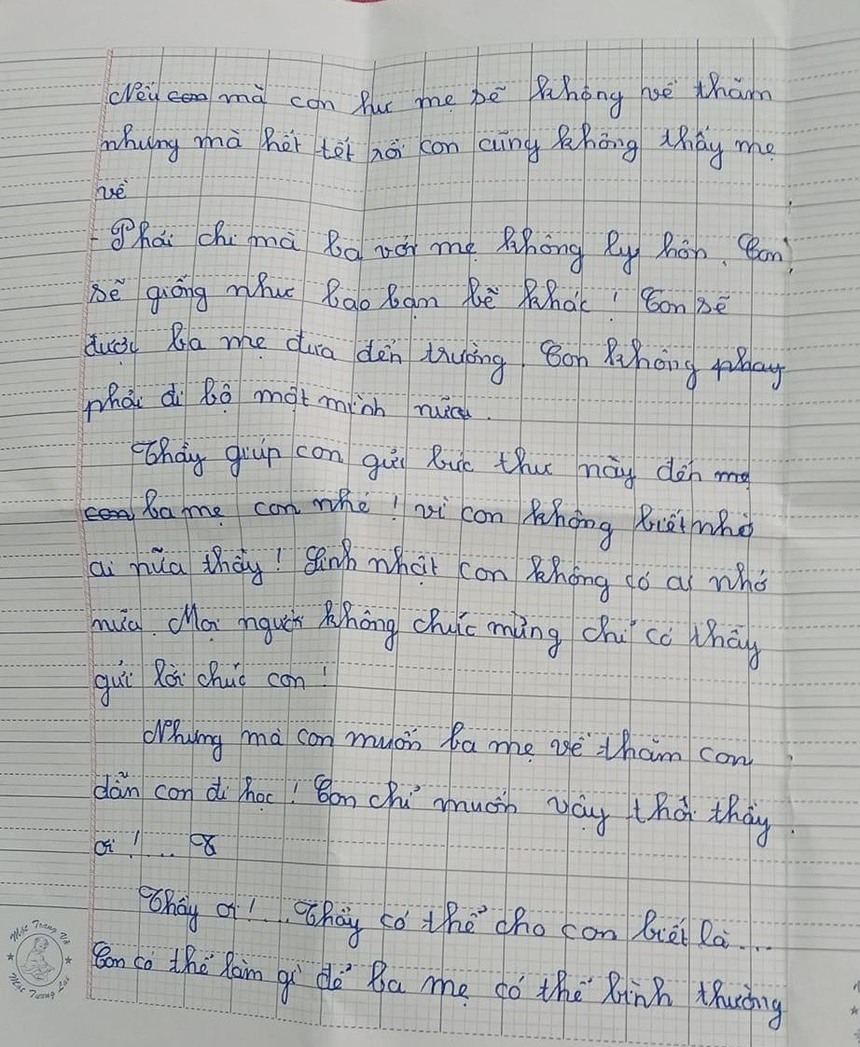 Nếu con mà con hư mẹ sẽ không về thăm
nhưng mà hết tết rồi con cũng không thấy mẹ
về
- Phải chi mà ba với mẹ không ly hôn. Con
sẽ giống như bao bạn bè khác! Con sẽ
được ba mẹ đưa đến trường. Con không phay
phải đi bộ một mình nữa.
Thầy giúp con gửi bức thư này đến mẹ
con ba mẹ con nhé! vì con không biết nhờ
ai nữa thầy! Sinh nhật con không có ai nhớ
nữa. Mọi người không chúc mừng chỉ có thầy
gửi lời chúc con!
Nhưng mà con muốn ba mẹ về thăm con
dẫn con đi học! Con chỉ muốn vậy thôi thầy
ơi!...
Thầy ơi!... Thầy có thể cho con biết là...
Con có thể làm gì để ba mẹ có thể bình thường